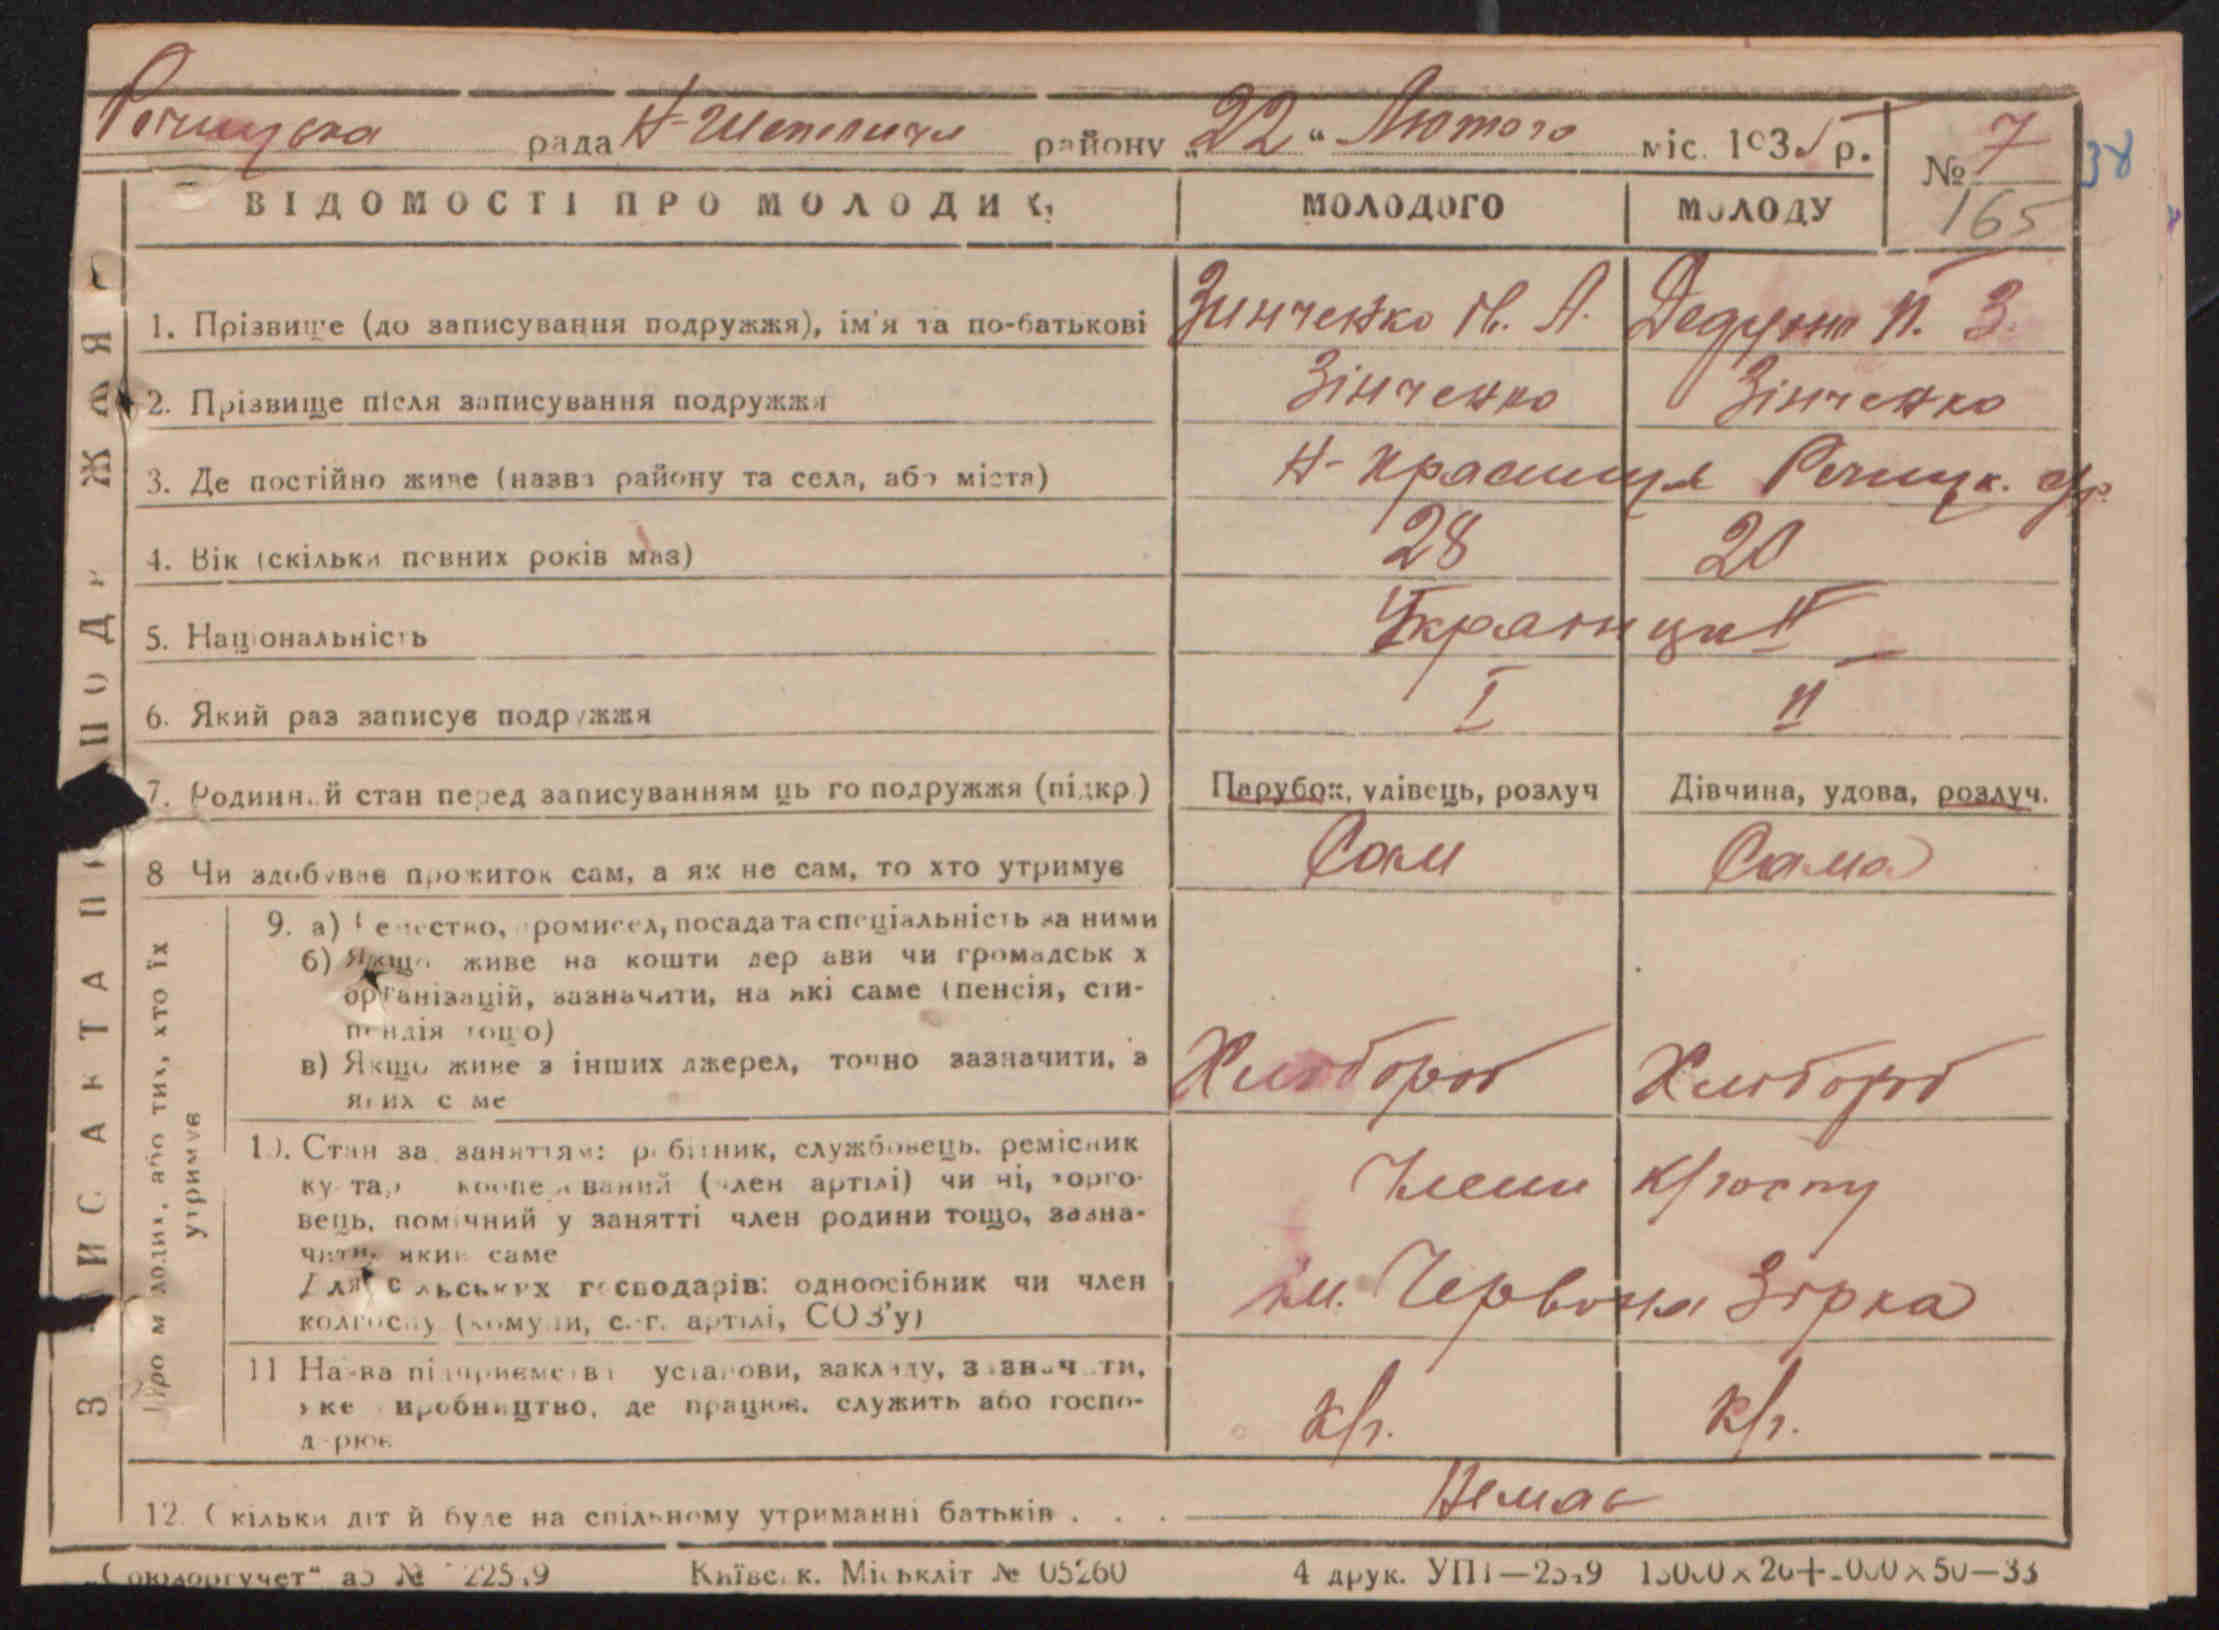 Речицька рада Н-Шепеличи району „22“ Лютого міс. 1935 р. № 7
38
165
ВІДОМОСТІ ПРО МОЛОДИХ МОЛОДОГО МОЛОДУ
1. Прізвище (до записування подружжя), ім'я та по-батькові Зинченко М. А. П. З.
2. Прізвище після записування подружжя Зінченко Зінченко
3. Де постійно живе (назва району та села, або міста) Н-Красниця Речицк. с/р.
4. Вік (скільки повних років має) 28 20
5. Національність Украинци
6. Який раз записує подружжя I II
7. Родинний стан перед записуванням цього подружжя (підкр.) Парубок, удівець, розлуч Дівчина, удова, розлуч.
8 Чи здобуває прожиток сам, а як не сам, то хто утримує Сам Сама
9. а) ремество, промисел, посада та спеціальність за ними
б) Якщо живе на кошти держави чи громадських
організацій, зазначити, на які саме (пенсія, сти-
пендія тощо)
в) Якщо живе з інших джерел, точно зазначити, з
яких саме Хлібороб Хлібороб
10. Стан за заняттям: робітник, службовець, ремісник
кустар кооперований (член артілі) чи ні, торго-
вець, помічний у занятті член родини тощо, зазна-
чити, який саме Члени к/госпу
Для сільських господарів: одноосібник чи член
колгоспу (комуни, с.-г. артілі, СОЗ'у) ім. Червона Зірка
11 Назва підприємства установи, закладу, зазначити,
яке виробництво, де працює, служить або госпо-
дарює к/г. к/г.
12. Скільки дітей буде на спільному утриманні батьків . . . Немає
ЗАПИС АКТА ПРО ПОДРУЖЖЯ
Про молодих, або тих, хто їх
утримує
„Союзоргучет“ № Київськ. Міськліт № 05260 4 друк. УПП